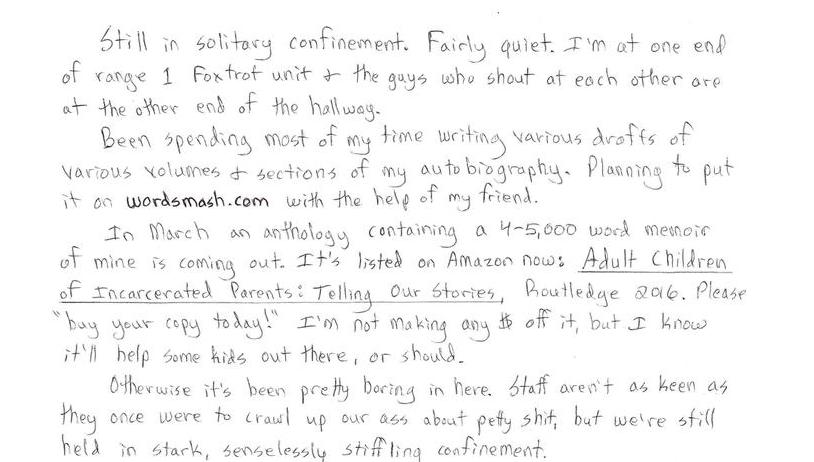 Still in solitary confinement. Fairly quiet. I'm at one end
of range 1 Foxtrot unit & the guys who shout at each other are
at the other end of the hallway.
Been spending most of my time writing various drafts of
various volumes & sections of my autobiography. Planning to put
it on wordsmash.com with the help of my friend.
In March an anthology containing a 4-5,000 word memoir
of mine is coming out. It's listed on Amazon now: Adult Children
of Incarcerated Parents: Telling Our Stories, Routledge 2016. Please
"buy your copy today!" I'm not making any $ off it, but I know
it'll help some kids out there, or should.
Otherwise it's been pretty boring in here. Staff aren't as keen as
they once were to crawl up our ass about petty shit, but we're still
held in stark, senselessly stiffling confinement.